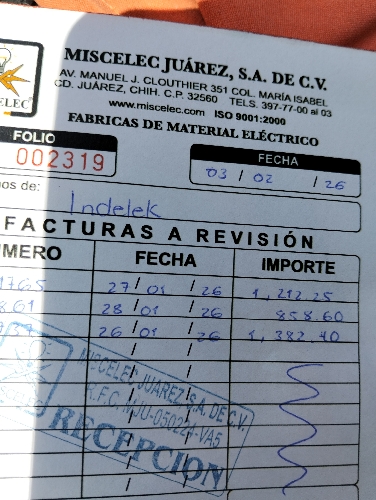 MISCELEC JUÁREZ, S.A. DE C.V.
AV. MANUEL J. CLOUTHIER 351 COL. MARÍA ISABEL
CD. JUÁREZ, CHIH. C.P. 32560 TELS. 397-77-00 al 03
www.miscelec.com ISO 9001:2000
FABRICAS DE MATERIAL ELÉCTRICO
ELEC
FOLIO
002319
FECHA
03 / 02 / 26
os de:
Indelek
FACTURAS A REVISIÓN
ÚMERO FECHA IMPORTE
1765 27 / 01 / 26 1,212.25
861 28 / 01 / 26 858.60
26 / 01 / 26 1,382.40
MISCELEC JUAREZ S.A. DE C.V.
R.F.C. MJU-050224-VA5
RECEPCION